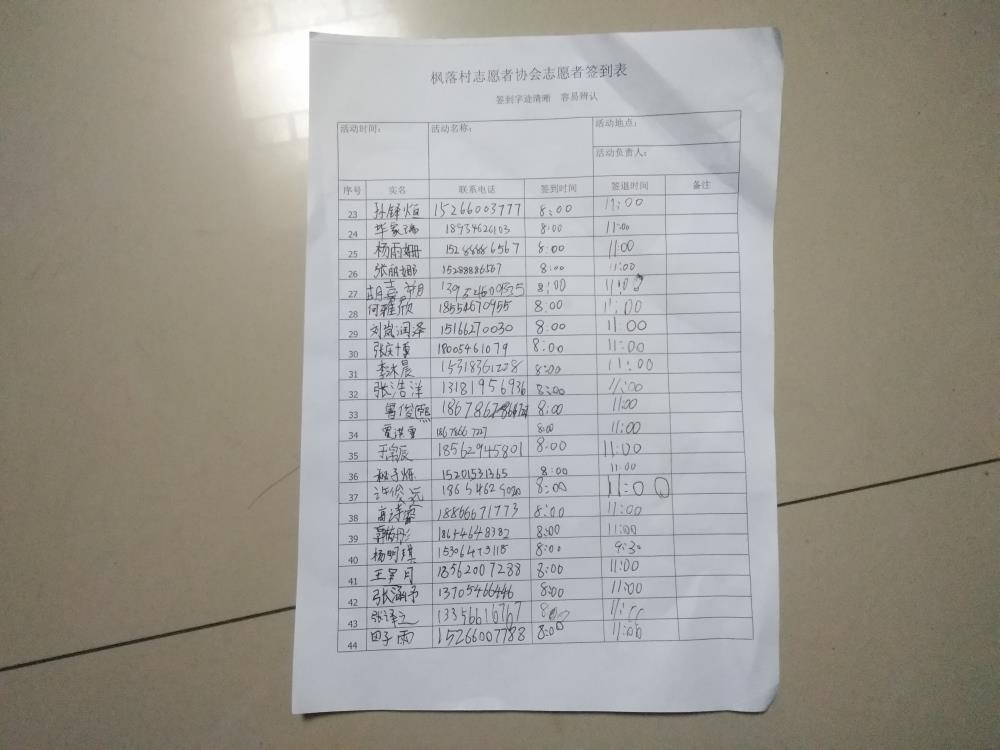 枫落村志愿者协会志愿者签到表
签到字迹清晰 容易辨认
活动时间： 活动名称： 活动地点：
活动负责人：
序号 实名 联系电话 签到时间 签退时间 备注
23 孙铎恒 15266003777 8:00 11:00
24 毕家瑞 18934626103 8:00 11:00
25 杨雨姗 15288886567 8:00 11:00
26 张丽娜 15288886567 8:00 11:00
27 胡嘉朔 8:00 11:00
28 何雅欣 18554670955 8:00 11:00
29 刘岚润泽 15166270030 8:00 11:00
30 张庆博 18005461079 8:00 11:00
31 李沐晨 15318361228 8:00 11:00
32 张浩洋 13181956936 8:00 11:00
33 俊熙 8:00 11:00
34 18678667727 8:00 11:00
35 18562945801 8:00 11:00
36 15201531365 8:00 11:00
37 18654629020 8:00 11:00
38 高诗睿 18866671773 8:00 11:00
39 18644648382 8:00 11:00
40 杨明琪 15306473115 8:00 9:30
41 王罗月 18562007288 8:00 11:00
42 张涵予 13705466446 8:00 11:00
43 张译之 13356616767 8:00 11:00
44 田子雨 15266007788 8:00 11:00